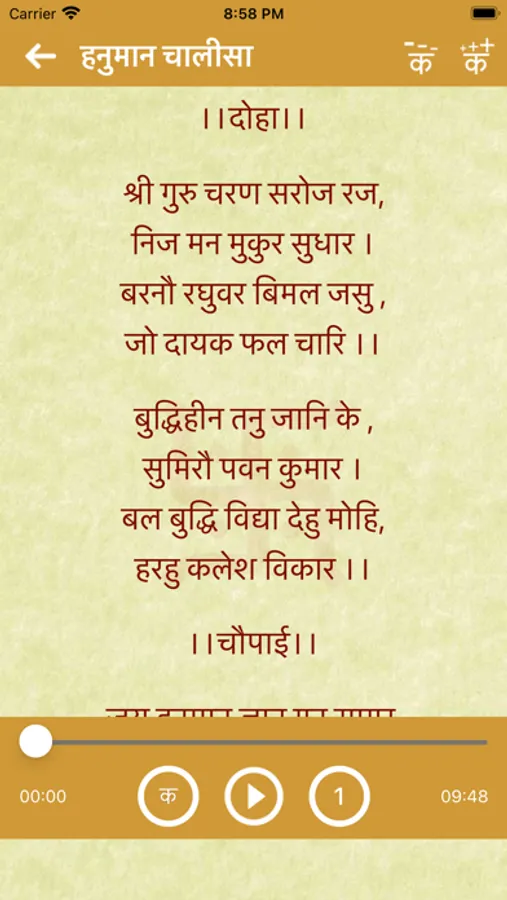 Carrier 8:58 PM
हनुमान चालीसा -- - क +++ क
।।दोहा।।
श्री गुरु चरण सरोज रज,
निज मन मुकुर सुधार ।
बरनौ रघुवर बिमल जसु ,
जो दायक फल चारि ।।
बुद्धिहीन तनु जानि के ,
सुमिरौ पवन कुमार ।
बल बुद्धि विद्या देहु मोहि,
हरहु कलेश विकार ।।
।।चौपाई।।
00:00 क 1 09:48